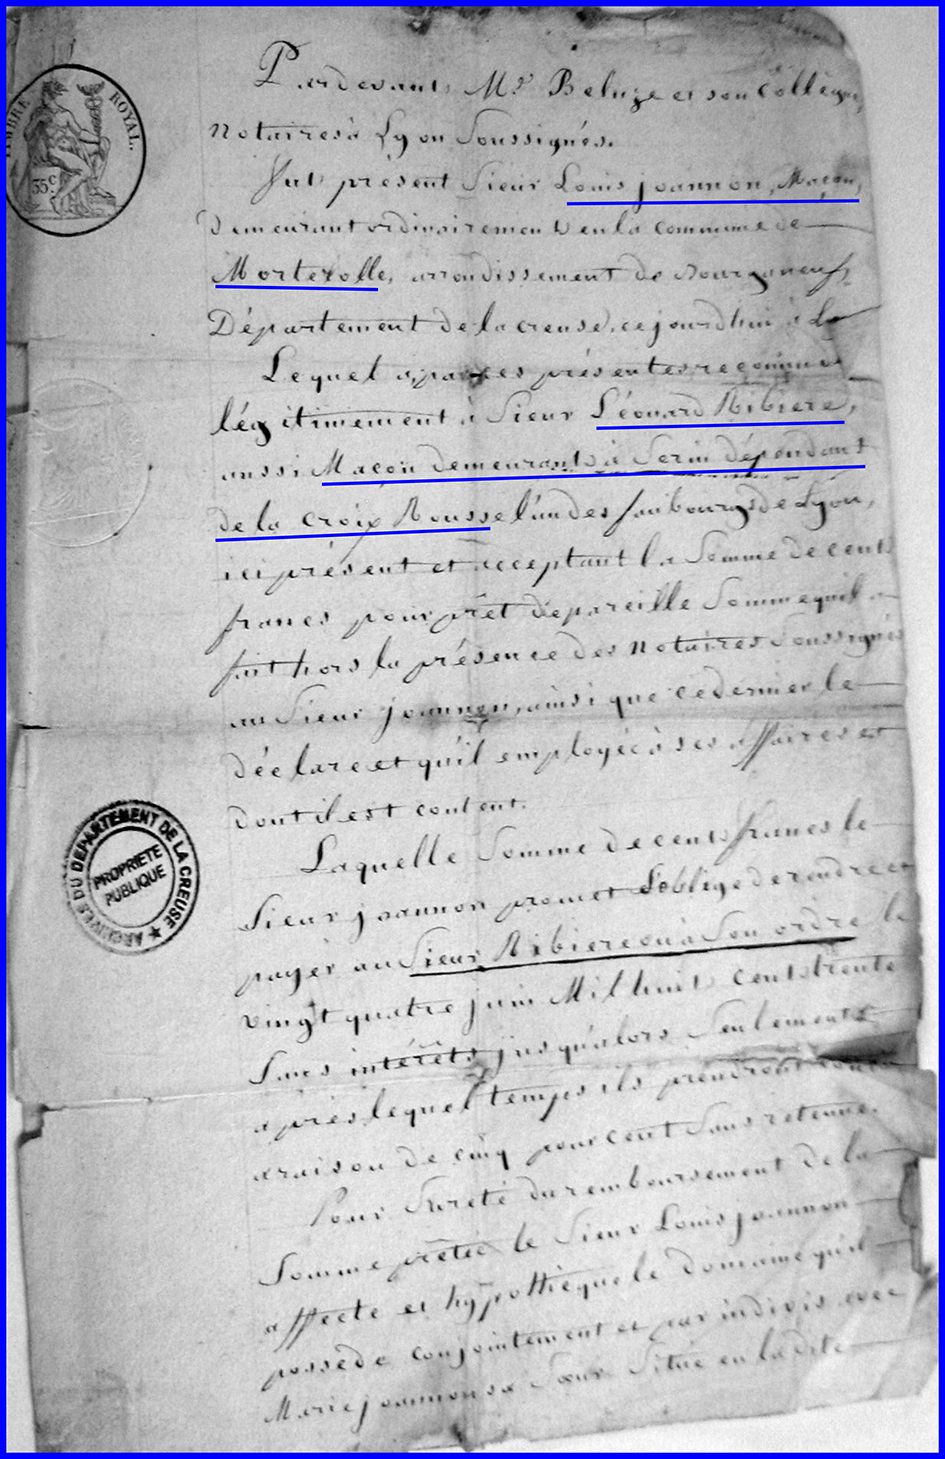 TIMBRE ROYAL.
35c
Pardevant Me Beluze et son Collègue,
notaires à Lyon Soussignés.
fut présent Sieur Louis joannon, Maçon,
demeurant ordinairement en la commune de
Morterolle, arrondissement de Bourganeuf,
Département de la creuse, ce jourd'hui à Ly
Lequel a par ces présentes reconnu
légitimement à Sieur Léonard Ribiere,
aussi Maçon demeurant à Serin dépendant
de la croix Rousse l'un des faubourgs de Lyon,
ici présent et acceptant la Somme de cent
francs pour prêt de pareille Somme qu'il a
fait hors la présence des notaires Soussignés
au Sieur joannon, ainsi que ce dernier le
déclare et qu'il employée à ses affaires et
dont il est content.
Laquelle Somme de cent francs le
Sieur joannon promet s'oblige de rendre et
payer au Sieur Ribiere ou à Son ordre le
vingt quatre juin Mil huit cent trente
Sans intérêts jusqu'alors Seulement
après lequel temps ils prendront
a raison de cinq pour cent Sans retenue.
Pour Sureté du remboursement de la
Somme prêtée le Sieur Louis joannon
affecte et hypothèque le domaine qu'il
possède conjointement et par indivis avec
Marie joannon sa Sœur Situé en la dite
ARCHIVES DU DEPARTEMENT DE LA CREUSE
PROPRIETE
PUBLIQUE